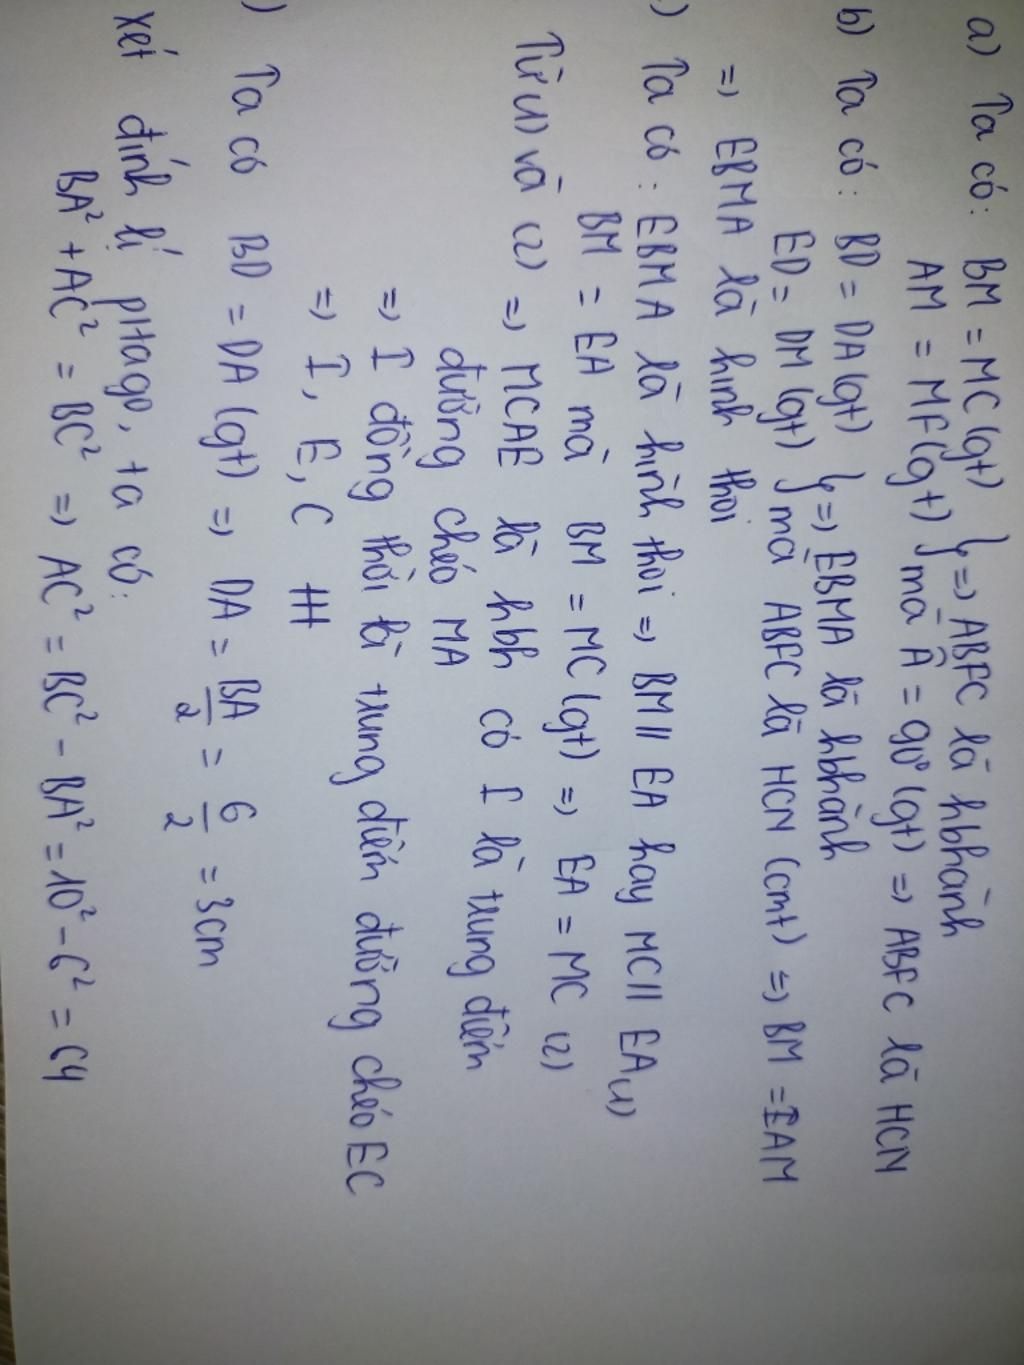 a) Ta có: BM = MC (gt) } => ABFC là hbhành
AM = MF (gt) } mà Â = 90° (gt) => ABFC là HCN
b) Ta có: BD = DA (gt) } => EBMA là hbhành
ED = DM (gt) } mà ABFC là HCN (cmt) => BM = AM
=> EBMA là hình thoi
) Ta có: EBMA là hình thoi => BM // EA hay MC // EA (1)
BM = EA mà BM = MC (gt) => EA = MC (2)
Từ (1) và (2) => MCAE là hbh có I là trung điểm
đường chéo MA
=> I đồng thời là trung điểm đường chéo EC
=> I, E, C
) Ta có BD = DA (gt) => DA = BA/2 = 6/2 = 3cm
Xét định lí pHago, ta có:
BA² + AC² = BC² => AC² = BC² - BA² = 10² - 6² = 64